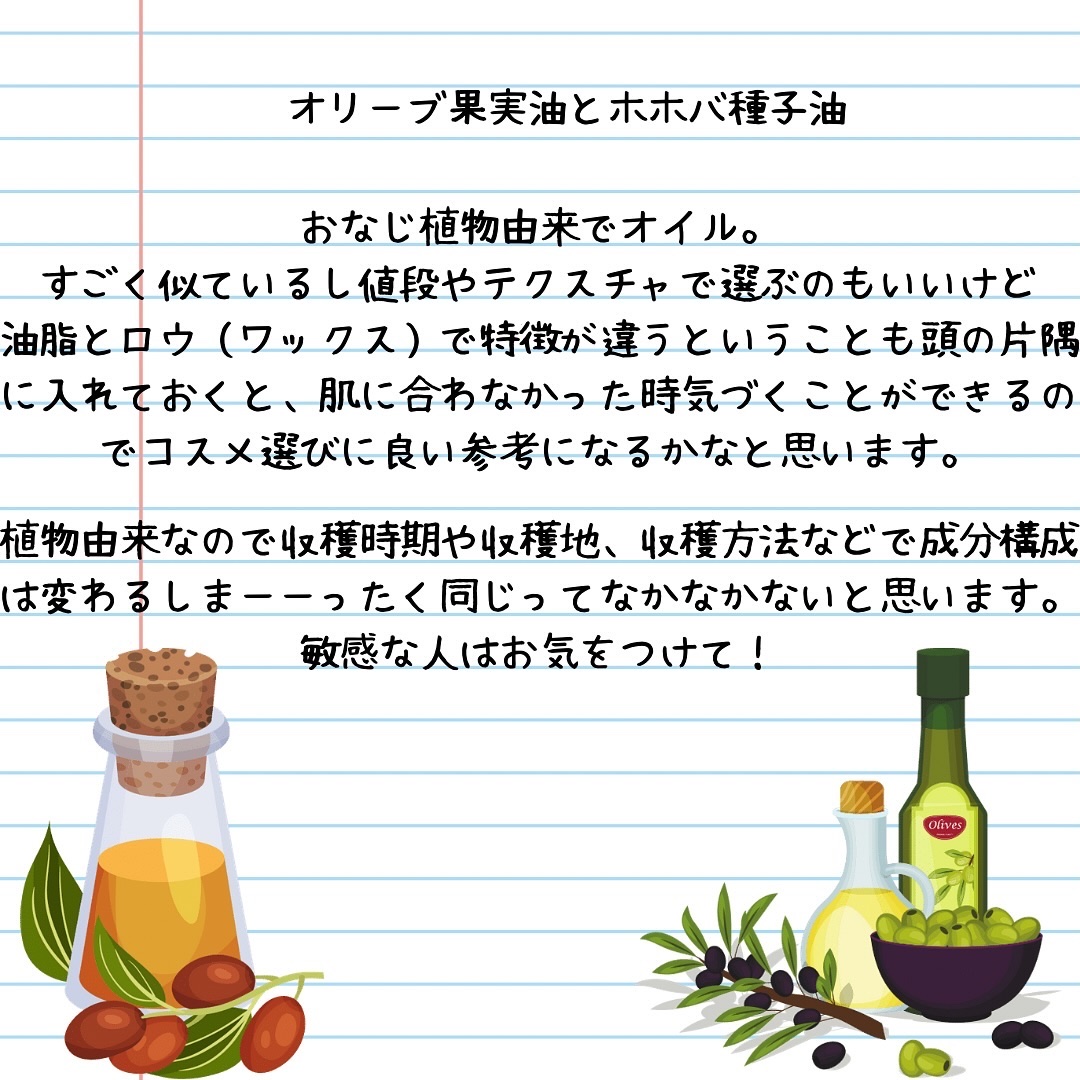 オリーブ果実油とホホバ種子油
おなじ植物由来でオイル。
すごく似ているし値段やテクスチャで選ぶのもいいけど
油脂とロウ（ワックス）で特徴が違うということも頭の片隅
に入れておくと、肌に合わなかった時気づくことができるの
でコスメ選びに良い参考になるかなと思います。
植物由来なので収穫時期や収穫地、収穫方法などで成分構成
は変わるしまーーったく同じってなかなかないと思います。
敏感な人はお気をつけて！
Olives